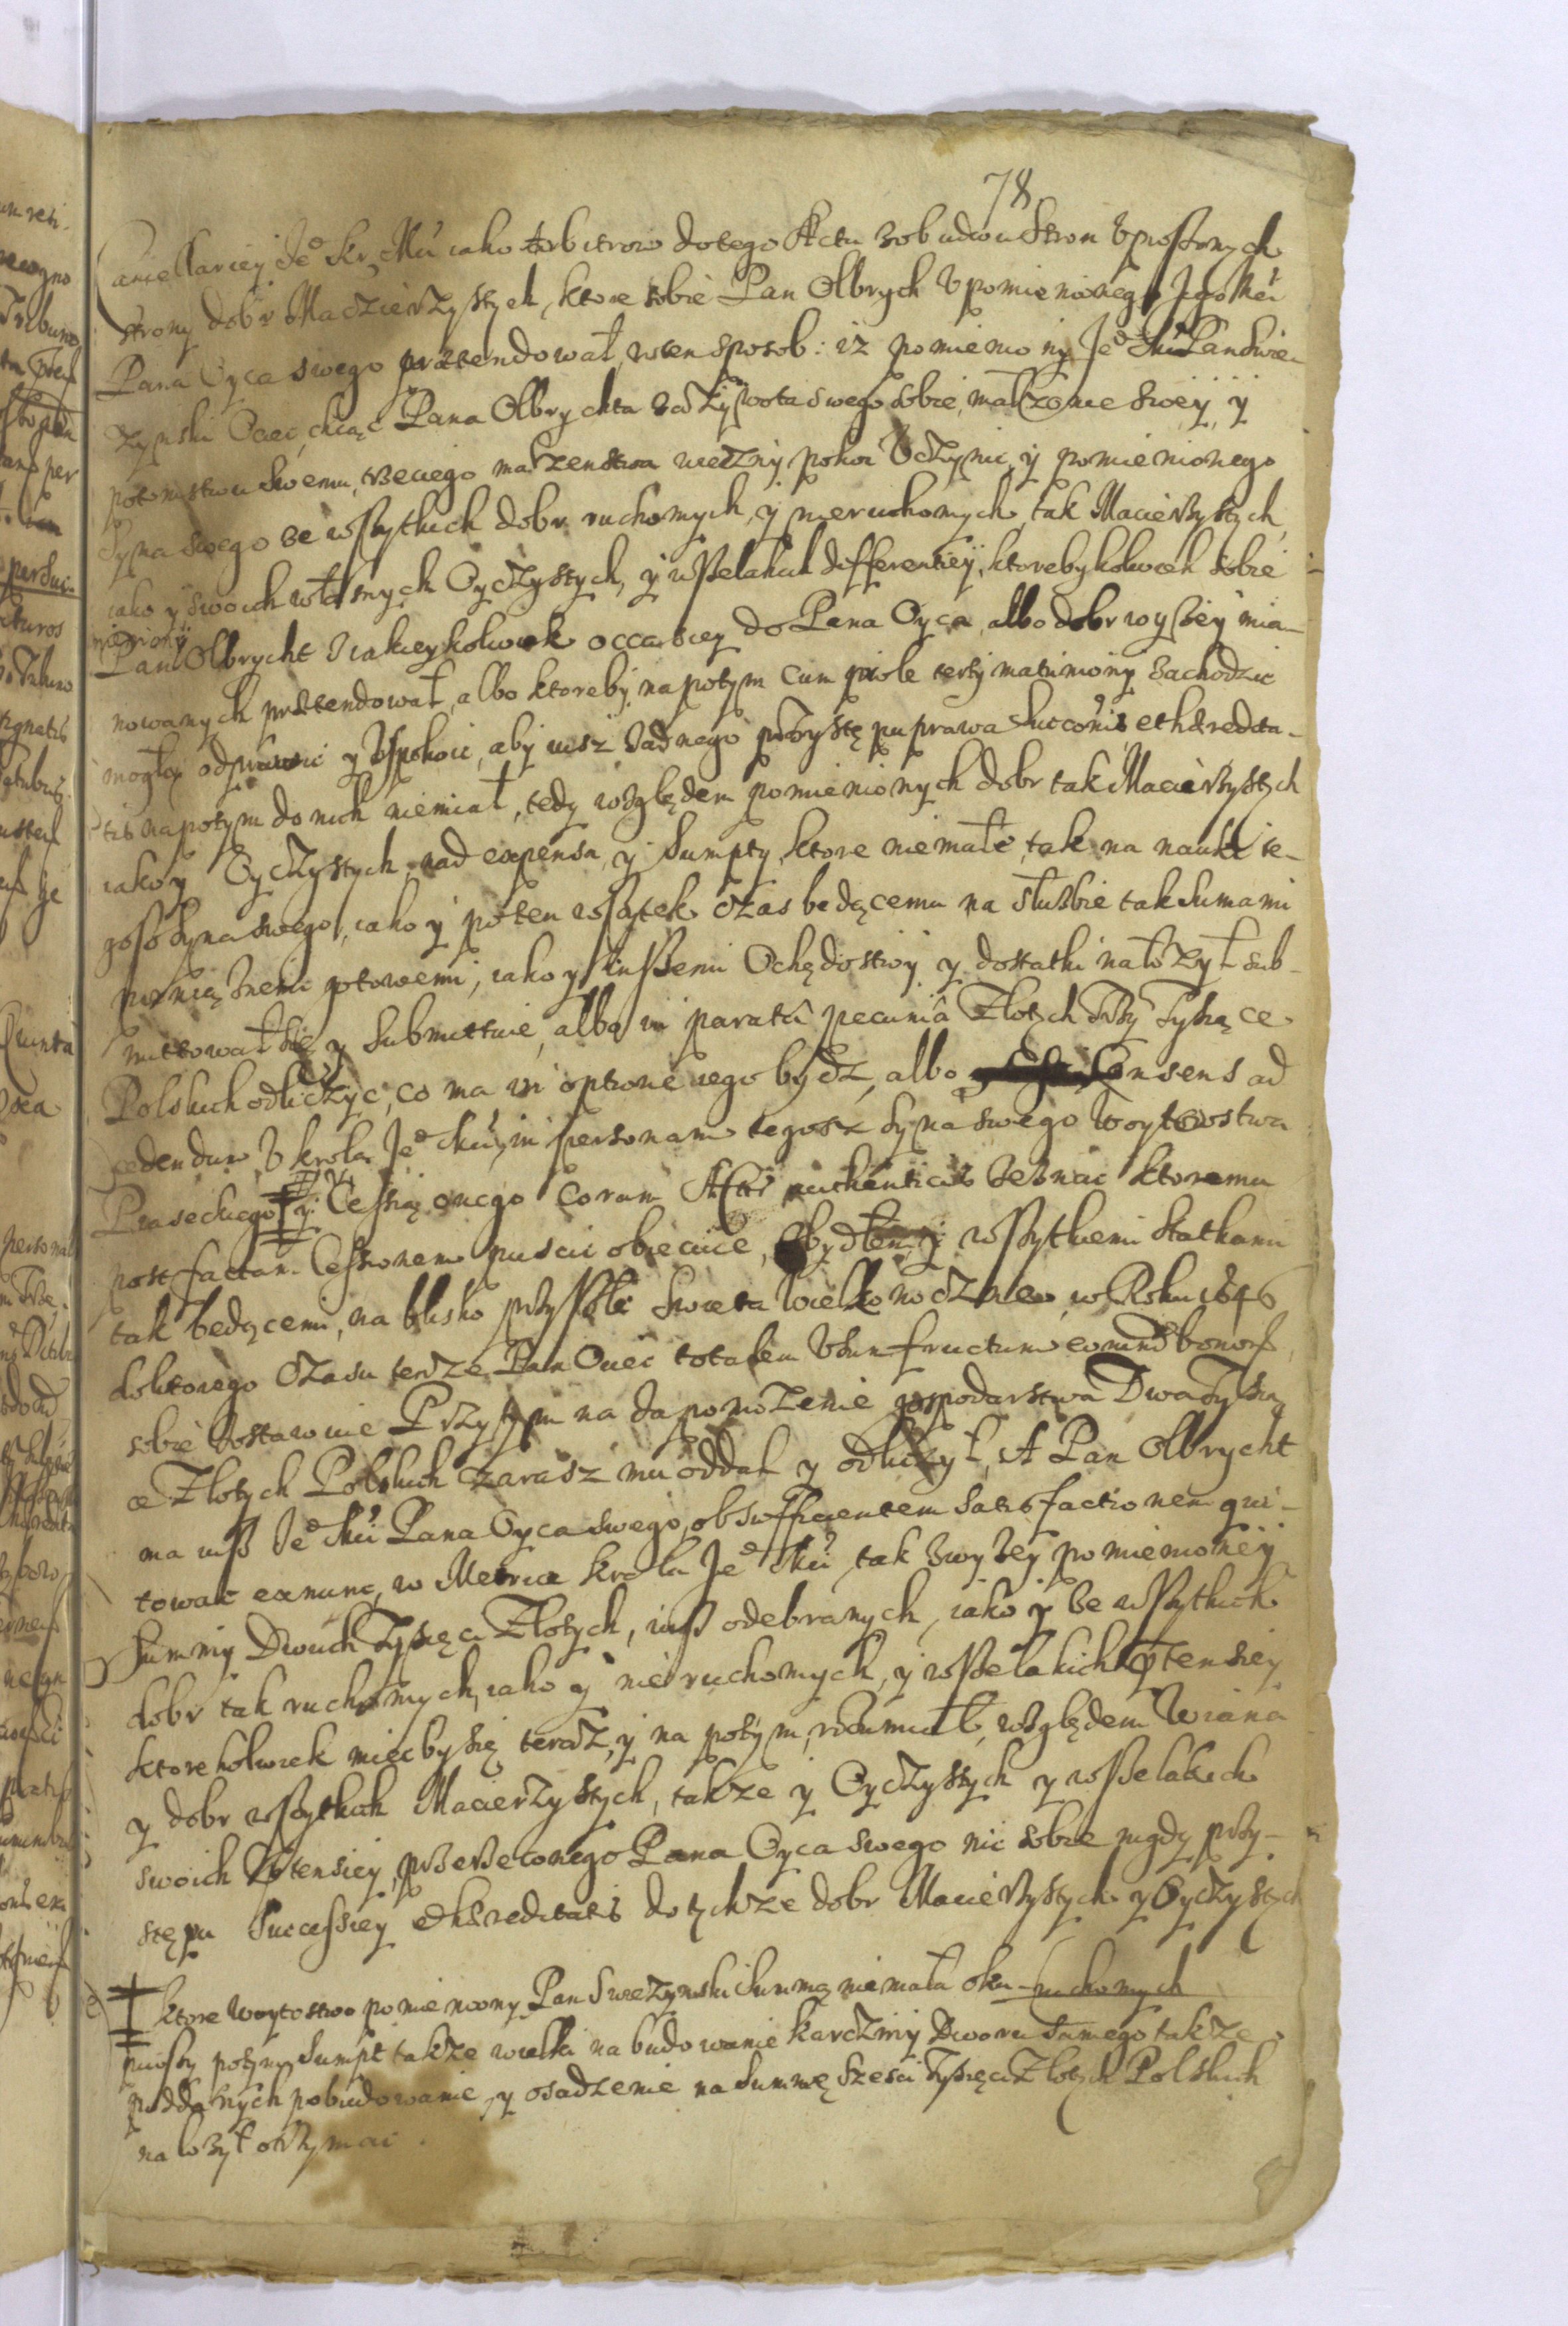 78
Cancellariey Je° Kr. Mći iako Arbitrow do tego Actu z obudwu stron Vproszonych
strony dobr Maczierzystych, ktore sobie Pan Olbrych V pomienionego Jego Mći
Pana Oyca swego prætendował, w ten sposob: iz pomieniony Je° Mć Pan Swie-
zynski Ociec, chcąc Pana Olbrychta za zywota swego sobie, małzonce swey, y
potomstwu swemu, trzeciego małzenstwa wieczny pokoi Vczynic, y pomienionego
Syna swego ze wszytkich dobr ruchomych, y nieruchomych, tak Macierzystych,
iako y swoich własnych Oyczystych, y wszelakich differentiey, ktorebykolwiek sobie
mieniony
Pan Olbrycht z iakieykolwiek occasiey do Pana Oyca, albo dobr wyzey mia-
nowanych prætendował, albo ktoreby na potym cum prole tertij matrimonij zachodzic
mogły odprawic y Vspokoic, aby iusz zadnego przystępu prawa succonis et hæredita-
tis napotym do nich niemiał, tedy względem pomienionych dobr tak Macierzystych
iako y Oyczystych, nad expensa, y sumpty, ktore niemałe, tak na nauki te-
gosz Syna swego, iako y po ten wszytek czas będącemu na słuzbie tak sumami
pieniąznemi gotowemi, iako y inszemi Ochędostwy y dostatki nałozył sub-
mittował się y submittuie, albo in parata pecunia Złotych Trzy Tysiące
Polskich odliczyc, co ma in optione iego bydz, albo Consens ad
cedendum V krola Je° Mći, in personam tegosz Syna swego Woytowstwa
Piaseckiego ‡ y Cessią onego coram Actis authenticis zeznac ktoremu
post factam Cessionem puscic obiecuie, z bydłem y wszytkiemi statkami
tak będącemi, na blisko przyszłe Swieta Wielkonoczne, w Roku 1646
do ktorego czasu terdze Pan Ociec totalem Vsumfructum eorund bonorum
sobie zostawuie Przytym na zapomozenie gospodarstwa Dwa Tysią
ce Złotych Polskich zarasz mu oddał y odliczył, A Pan Olbrycht
ma iusz Je° Mći Pana Oyca swego, ob sufficientem satisfactionem qui-
towac ex nunc, w Metrice krola Je° Mći, tak z wyzey pomienioney
Summy Dwuch Tysięcy Złotych, iusz odebranych, iako y ze wszytkich
dobr tak ruchomych, iako y nieruchomych, y wszelakich ptensiey
ktorekolwiek miec by się teraz, y na potym, rozumiał, względem Wiana
y dobr wszytkich Macierzystych, takze y Oyczystych y wszelakich
swoich ptensiey, przerzeczonego Pana Oyca swego nic sobie nigdy przy-
stępu Successiey et hæreditatis do tychze dobr Macierzystych y Oyczystych
‡ ktore Woytostwo pomieniony Pan Swiezynski Summą niemała oku- ruchomych
piwszy potym Sumpt takze wielki na budowanie karczmy Dworu samego takze
poddanych pobudowanie, y osadzenie na Summę Szesci Tysięcy Złotych Polskich
nalozył otrzymac.